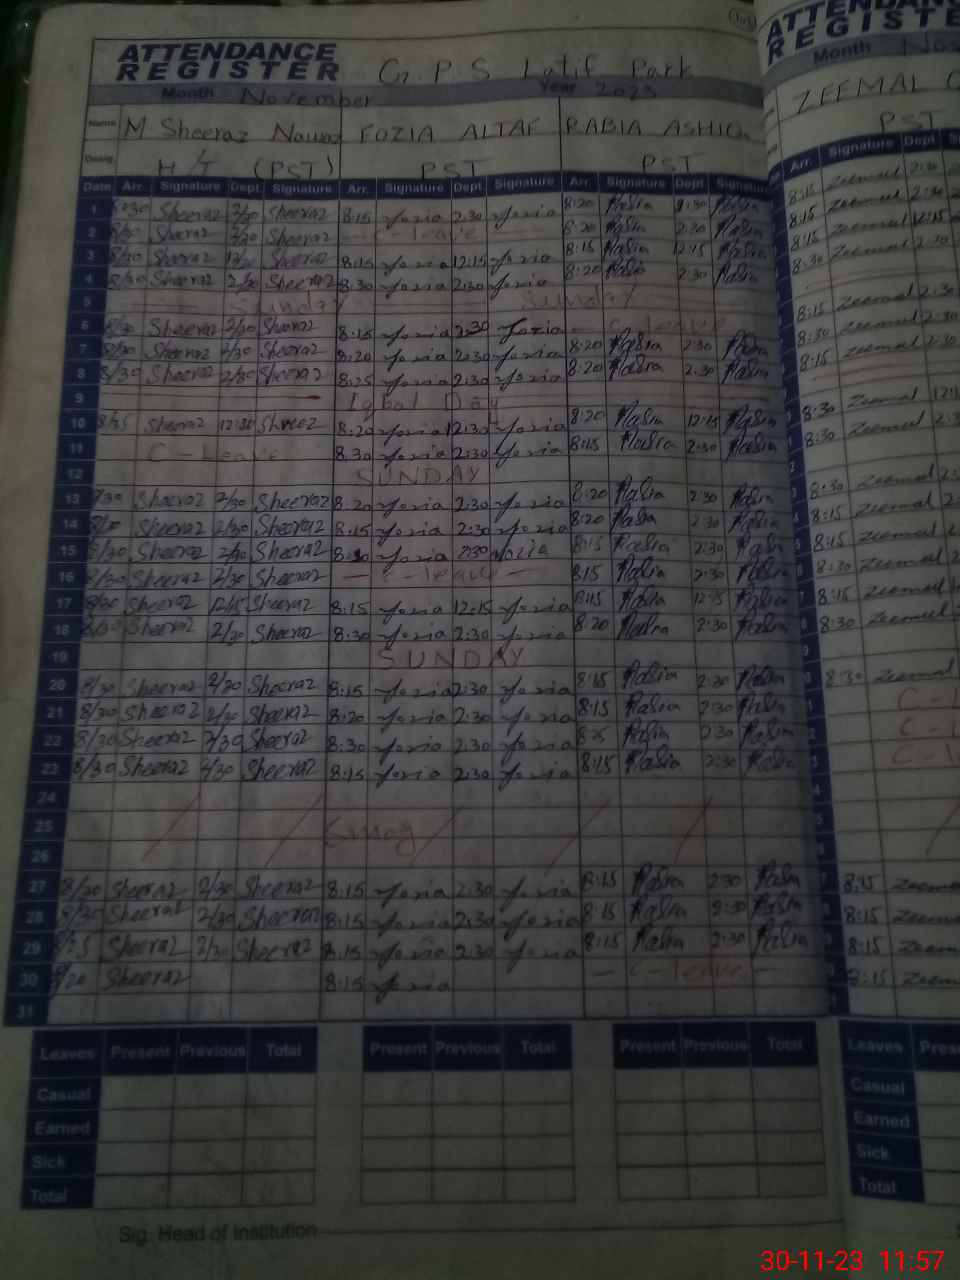 ATTENDANCE REGISTER G.P.S Latif Park
Month November Year 2023
Name M Sheeraz Nawaz FOZIA ALTAF RABIA ASHIQ
Desig. H/T (PST) PST PST
Date Arr. Signature Dept. Signature Arr. Signature Dept. Signature Arr. Signature Dept. Signature
1 8/30 Sheeraz 2/30 Sheeraz 8:15 Fozia 2:30 Fozia 8:20 Rabia 2:30 Rabia
2 8/30 Sheeraz 2/30 Sheeraz C-leave 8:20 Rabia 2:30 Rabia
3 Sheeraz Sheeraz 8:15 Fozia 12:15 Fozia 8:15 Rabia 12:15 Rabia
4 8/30 Sheeraz 2/30 Sheeraz 8:30 Fozia 2:30 Fozia 8:20 Rabia 2:30 Rabia
5 Sunday Sunday
6 8/30 Sheeraz 2/30 Sheeraz 8:15 Fozia 2:30 Fozia C-leave
7 Sheeraz 2/30 Sheeraz 8:20 Fozia 2:30 Fozia 8:20 Rabia 2:30 Rabia
8 8/30 Sheeraz 2/30 Sheeraz 8:25 Fozia 2:30 Fozia 8:20 Rabia 2:30 Rabia
9 Iqbal Day
10 Sheeraz 12:30 Sheeraz 8:20 Fozia 12:30 Fozia 8:20 Rabia 12:15 Rabia
11 C-Leave 8:30 Fozia 2:30 Fozia 8:15 Rabia 2:30 Rabia
12 SUNDAY
13 Sheeraz 2/30 Sheeraz 8:20 Fozia 2:30 Fozia 8:20 Rabia 2:30 Rabia
14 Sheeraz 2/30 Sheeraz 8:15 Fozia 2:30 Fozia 8:20 Rabia 2:30 Rabia
15 8/30 Sheeraz 2/30 Sheeraz Fozia 2:30 Fozia 8:15 Rabia 2:30 Rabia
16 8/30 Sheeraz 2/30 Sheeraz C-leave 8:15 Rabia 2:30 Rabia
17 8/30 Sheeraz 12/15 Sheeraz 8:15 Fozia 12:15 Fozia 8:15 Rabia 12:15 Rabia
18 8/30 Sheeraz 2/30 Sheeraz 8:30 Fozia 2:30 Fozia 8:20 Rabia 2:30 Rabia
19 SUNDAY
20 8/30 Sheeraz 2/30 Sheeraz 8:15 Fozia 2:30 Fozia 8:15 Rabia 2:30 Rabia
21 8/30 Sheeraz 2/30 Sheeraz 8:20 Fozia 2:30 Fozia 8:15 Rabia 2:30 Rabia
22 8/30 Sheeraz 2/30 Sheeraz 8:30 Fozia 2:30 Fozia Rabia 2:30 Rabia
23 8/30 Sheeraz 2/30 Sheeraz 8:15 Fozia 2:30 Fozia 8:15 Rabia 2:30 Rabia
24
25 Smog
26
27 Sheeraz 2/30 Sheeraz 8:15 Fozia 2:30 Fozia 8:15 Rabia 2:30 Rabia
28 Sheeraz 2/30 Sheeraz 8:15 Fozia 2:30 Fozia 8:15 Rabia 2:30 Rabia
29 Sheeraz 2/30 Sheeraz 8:15 Fozia 2:30 Fozia 8:15 Rabia 2:30 Rabia
30 Sheeraz 8:15 Fozia C-leave
31
Leaves Present Previous Total Present Previous Total Present Previous Total
Casual
Earned
Sick
Total
Sig. Head of Institution
ATTENDANCE
REGISTER
Month
ZEEMAL
PST
Arr. Signature Dept.
8:15 Zeemal 2:30
8:15 Zeemal 2:30
8:15 Zeemal 12:15
8:30 Zeemal 2:30
8:15 Zeemal 2:30
8:30 Zeemal 2:30
8:15 Zeemal 2:30
8:30 Zeemal
8:30 Zeemal
8:30 Zeemal
8:15 Zeemal
8:15 Zeemal
8:30 Zeemal
8:15 Zeemal
8:30 Zeemal
8:30 Zeemal
8:15 Zeem
8:15 Zeem
8:15 Zeem
8:15 Zeem
Leaves
Casual
Earned
Sick
Total
30-11-23 11:57